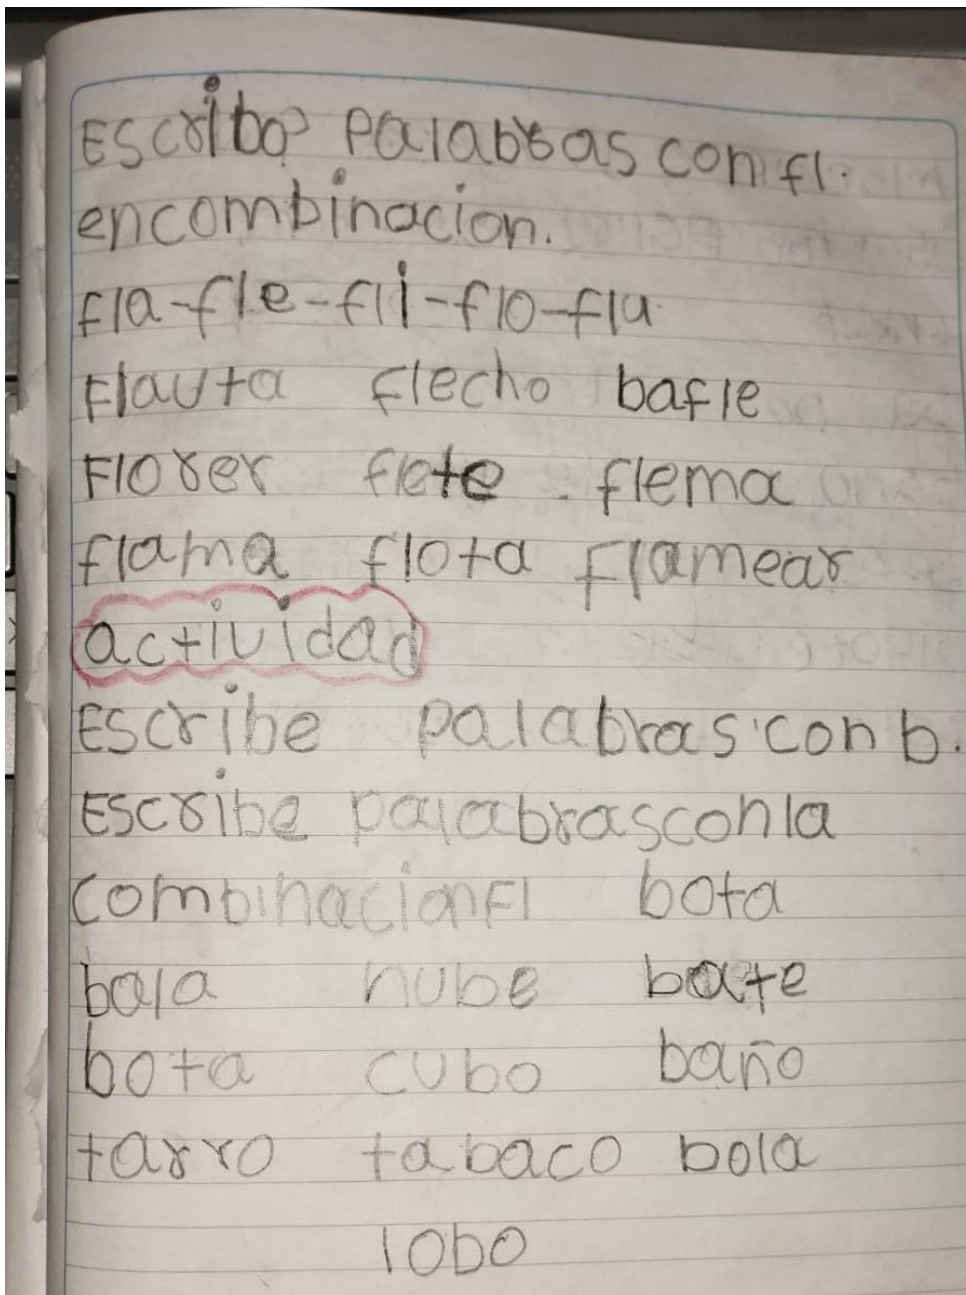 Escribo palabras con fl.
encombinacion.
fla-fle-fli-flo-flu
Flauta flecho bafle
Florer flete flema
flama flota flamear
actividad
Escribe palabras con b.
Escribe palabrasconla
combinacionFl bota
bala nube bate
bota cubo baño
tarro tabaco bola
lobo